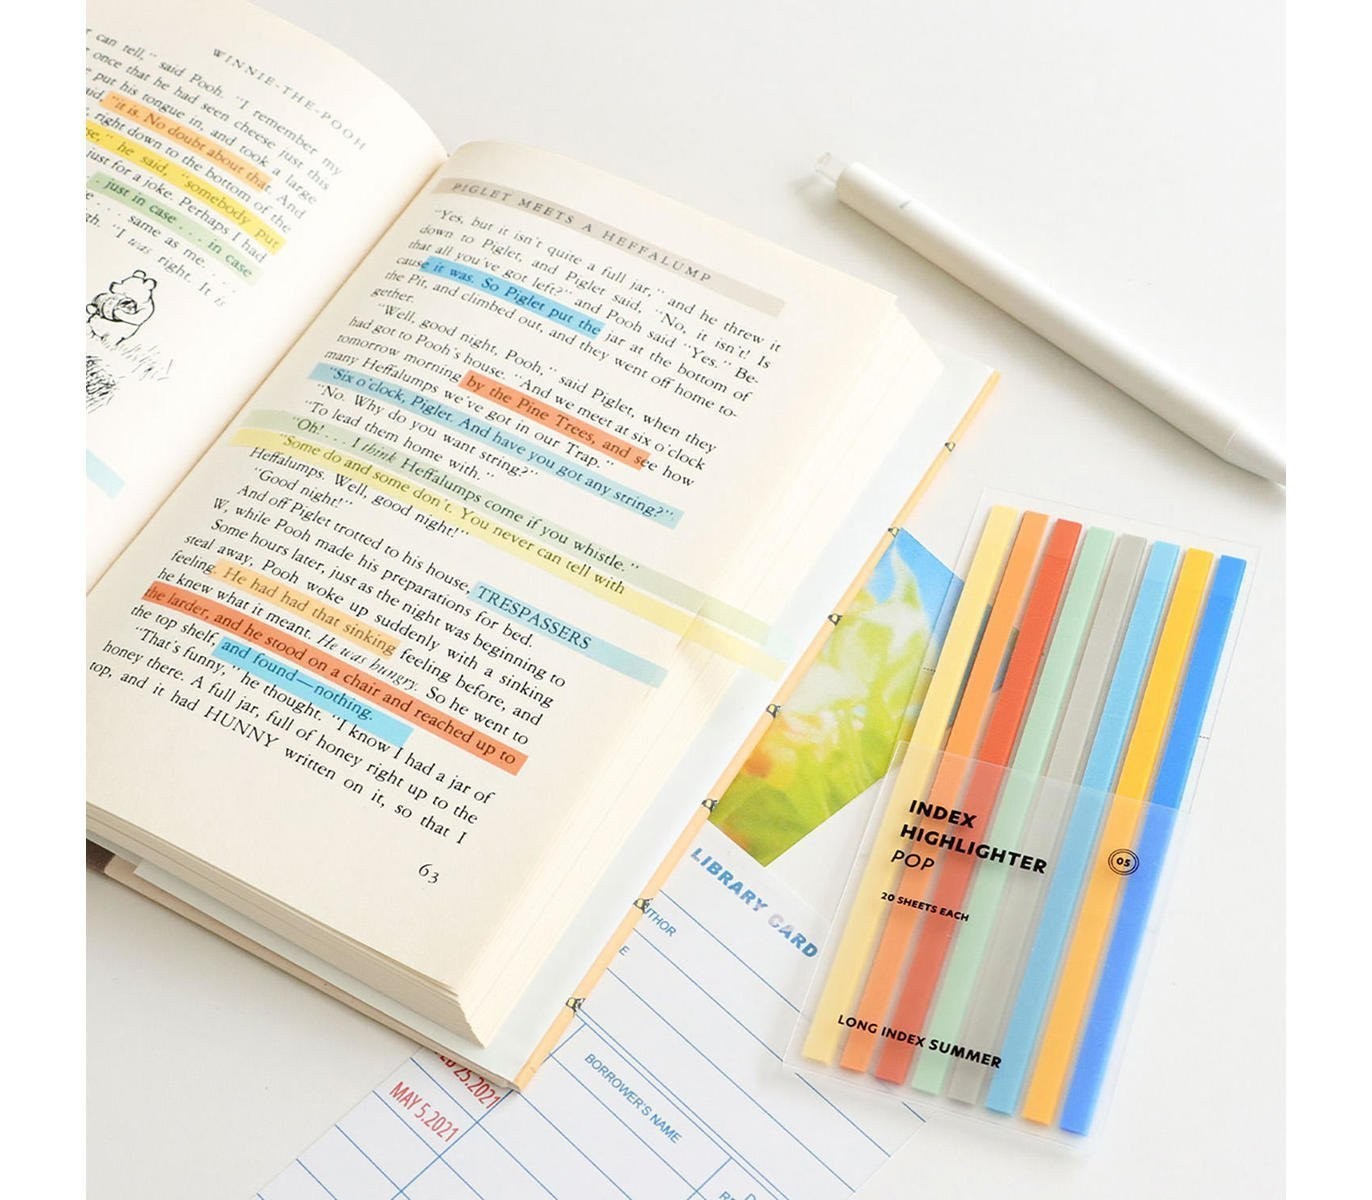 WINNIE-THE-POOH
can tell," said Pooh. "I remember my
once that he had seen cheese just this
put his tongue in, and took a large
"it is. No doubt about that. And
right down to the bottom of the
he said, "somebody put
just for a joke. Perhaps I had
just in case . . . in case
same as me. . . .
"I was right. It is
PIGLET MEETS A HEFFALUMP
"Yes, but it isn't quite a full jar," and he threw it
down to Piglet, and Piglet said, "No, it isn't! Is
that all you've got left?" and Pooh said "Yes." Be-
cause it was. So Piglet put the jar at the bottom of
the Pit, and climbed out, and they went off home to-
gether.
"Well, good night, Pooh," said Piglet, when they
had got to Pooh's house. "And we meet at six o'clock
tomorrow morning by the Pine Trees, and see how
many Heffalumps we've got in our Trap."
"Six o'clock, Piglet. And have you got any string?"
"No. Why do you want string?"
"To lead them home with."
"Oh! . . . I think Heffalumps come if you whistle."
"Some do and some don't. You never can tell with
Heffalumps. Well, good night!"
"Good night!"
And off Piglet trotted to his house, TRESPASSERS
W, while Pooh made his preparations for bed.
Some hours later, just as the night was beginning to
steal away, Pooh woke up suddenly with a sinking
feeling. He had had that sinking feeling before, and
he knew what it meant. He was hungry. So he went to
the larder, and he stood on a chair and reached up to
the top shelf, and found—nothing.
"That's funny," he thought. "I know I had a jar of
honey there. A full jar, full of honey right up to the
top, and it had HUNNY written on it, so that I
63
INDEX
HIGHLIGHTER
POP
05
20 SHEETS EACH
LONG INDEX SUMMER
LIBRARY CARD
BORROWER'S NAME
25.2021
MAY 5.2021